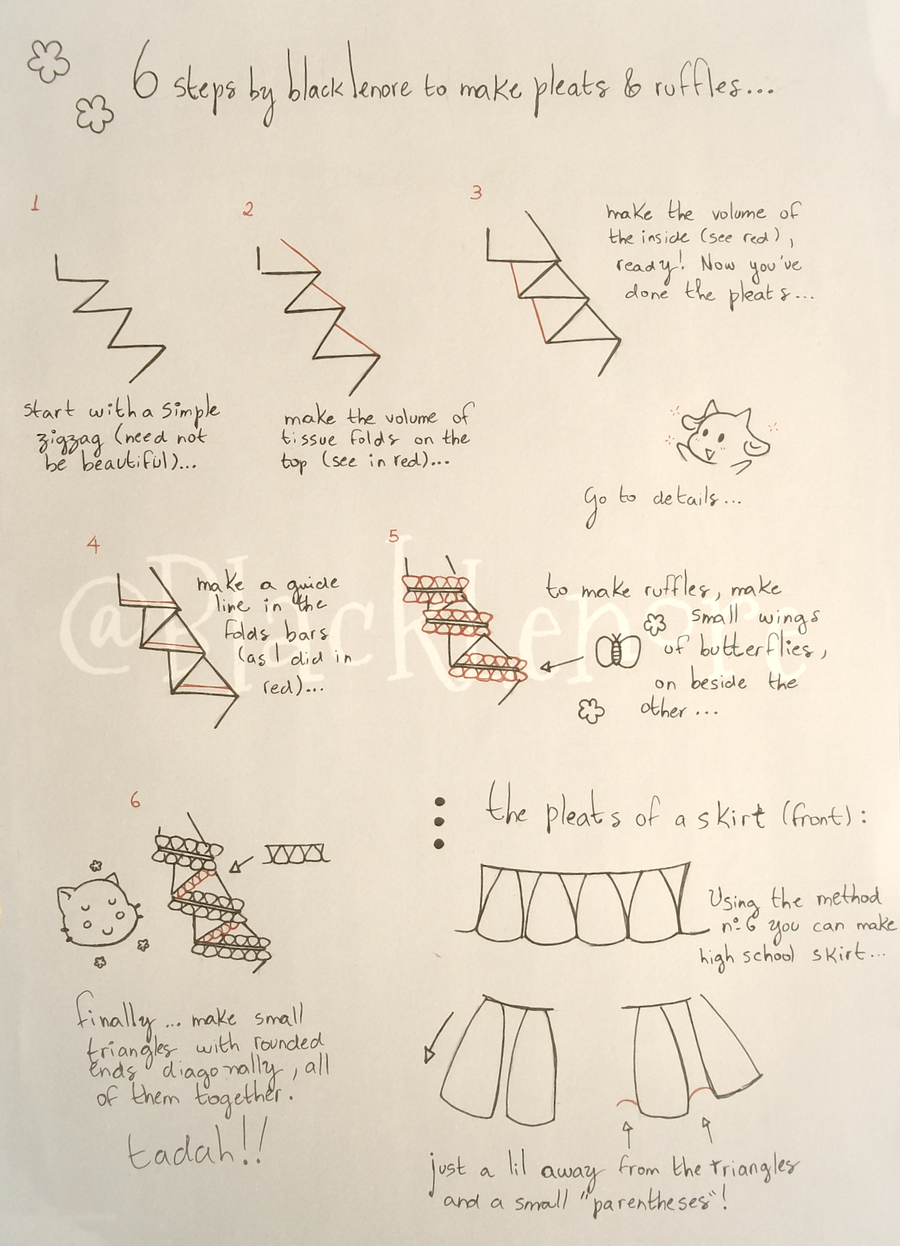 6 steps by blacklenore to make pleats & ruffles...
1
2
3
make the volume of
the inside (see red),
ready! Now you've
done the pleats...
start with a simple
zigzag (need not
be beautiful)...
make the volume of
tissue folds on the
top (see in red)...
Go to details...
4
make a guide
line in the
folds bars
(as I did in
red)...
5
to make ruffles, make
small wings
of butterflies,
on beside the
other...
@Blacklenore
6
finally... make small
triangles with rounded
ends diagonally, all
of them together.
tadah!!
the pleats of a skirt (front):
Using the method
nº6 you can make
high school skirt...
just a lil away from the triangles
and a small "parentheses"!